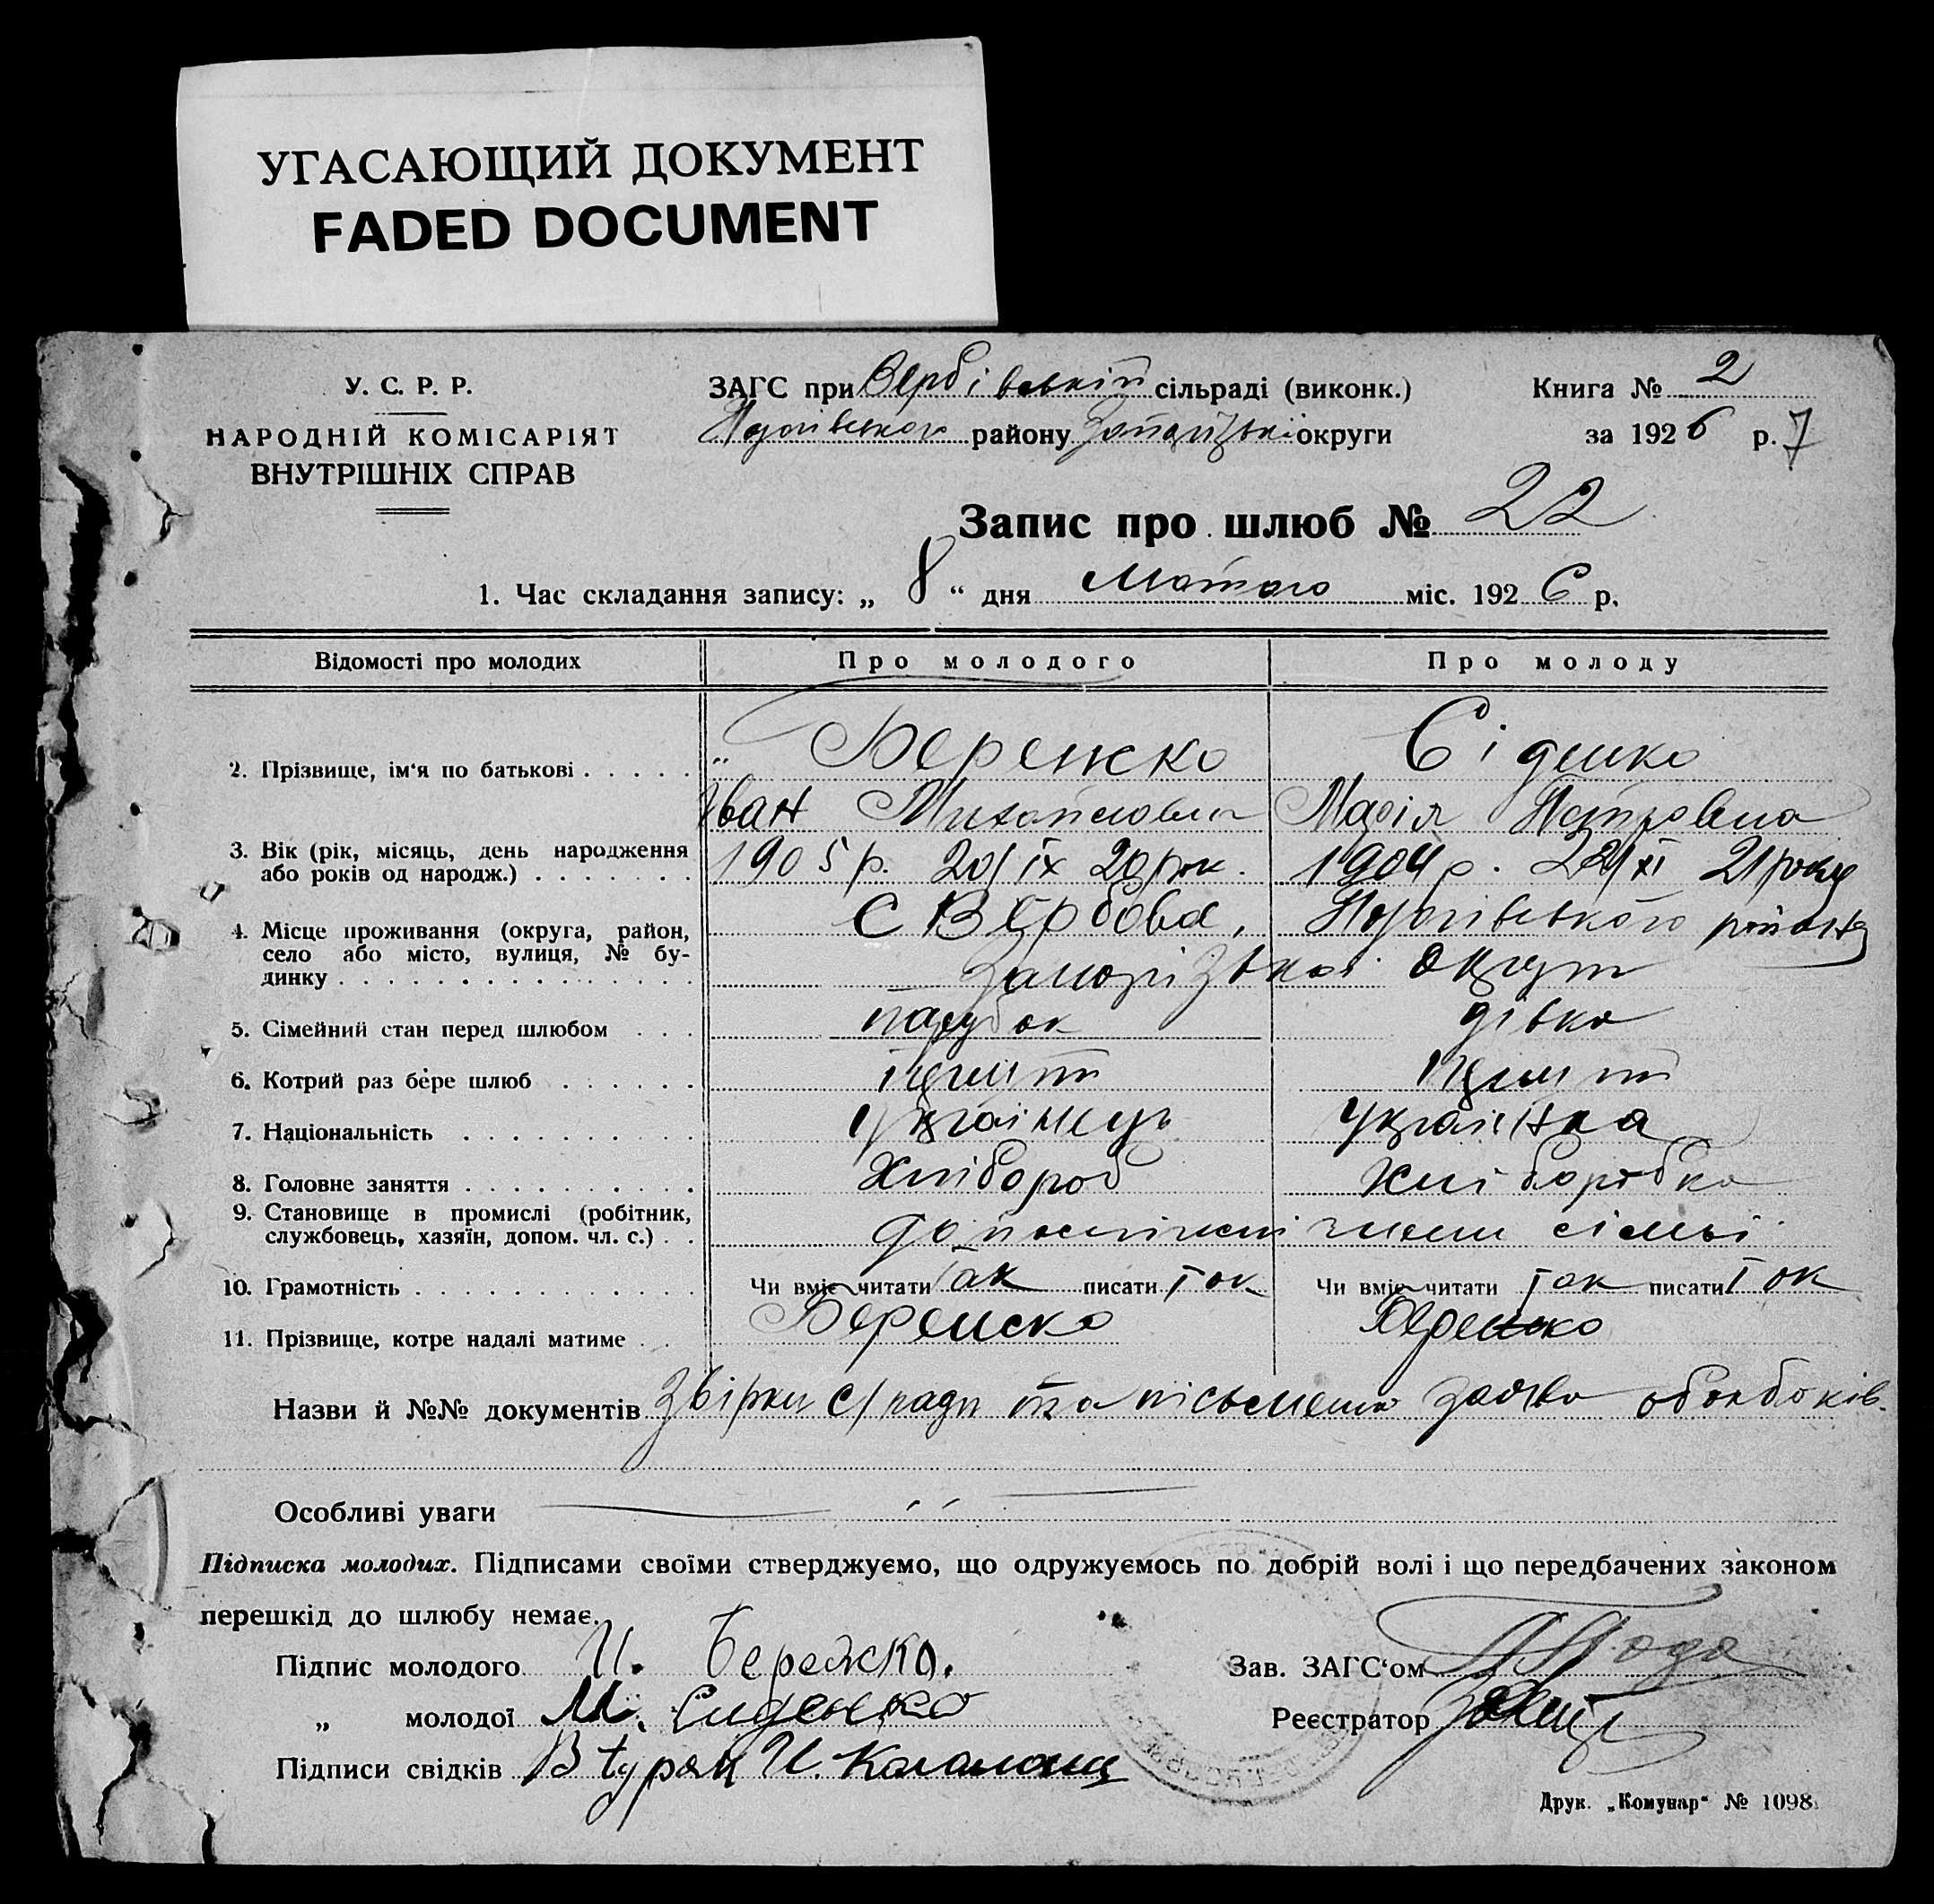 УГАСАЮЩИЙ ДОКУМЕНТ
FADED DOCUMENT
У. С. Р. Р.
НАРОДНІЙ КОМІСАРІЯТ
ВНУТРІШНІХ СПРАВ
ЗАГС при Вербівській сільраді (виконк.)
району Запорізької округи
Книга № 2
за 1926 р. 7
Запис про шлюб № 22
1. Час складання запису: „ 8 “ дня Лютого міс. 1926 р.
Відомості про молодих
Про молодого
Про молоду
2. Прізвище, ім‘я по батькові
Бережко
Сіденко
Іван Михайлович
Марія Петровна
3. Вік (рік, місяць, день народження
або років од народж.)
1905 р. 20/IX 20 рок.
1904 р. 22/XI 21 року
4. Місце проживання (округа, район,
село або місто, вулиця, № бу-
динку
С Вербова, району
Запорізької округи
5. Сімейний стан перед шлюбом
парубок
дівка
6. Котрий раз бере шлюб
перший
перший
7. Національність
Українець
Українка
8. Головне заняття
Хлібороб
Хліборобка
9. Становище в промислі (робітник,
службовець, хазяїн, допом. чл. с.)
допомічні члени сімьї
10. Грамотність
Чи вміє читати так писати так
Чи вміє читати так писати так
11. Прізвище, котре надалі матиме
Бережко
Бережко
Назви й №№ документів Звірки с/ради та пісьмена заява обохбоків.
Особливі уваги
Підписка молодих. Підписами своїми стверджуємо, що одружуємось по добрій волі і що передбачених законом
перешкід до шлюбу немає.
Підпис молодого И. Бережко.
„ молодої М. Сиденко
Підписи свідків
Зав. ЗАГС‘ом
Реєстратор
Друк. „Комунар“ № 1098